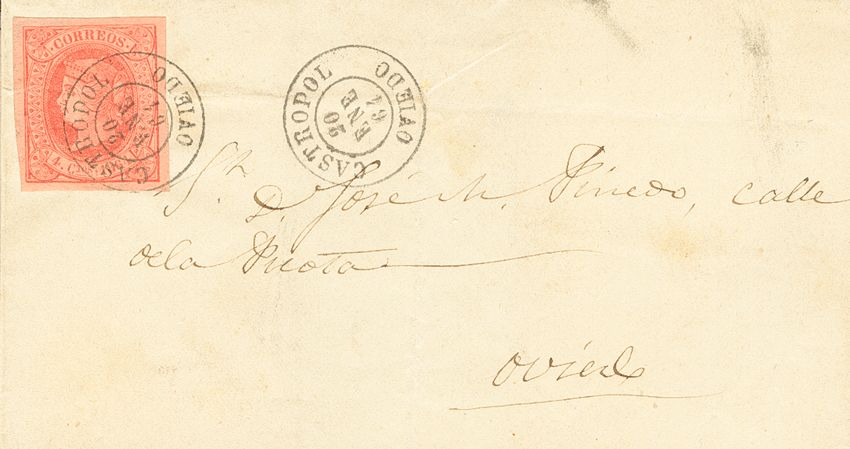 CORREOS.
4. CUARTOS
CASTROPOL
20
ENE
64
OVIEDO
CASTROPOL
20
ENE
64
OVIEDO
Sr.
D. José M. Pinedo, calle
de la
Oviedo